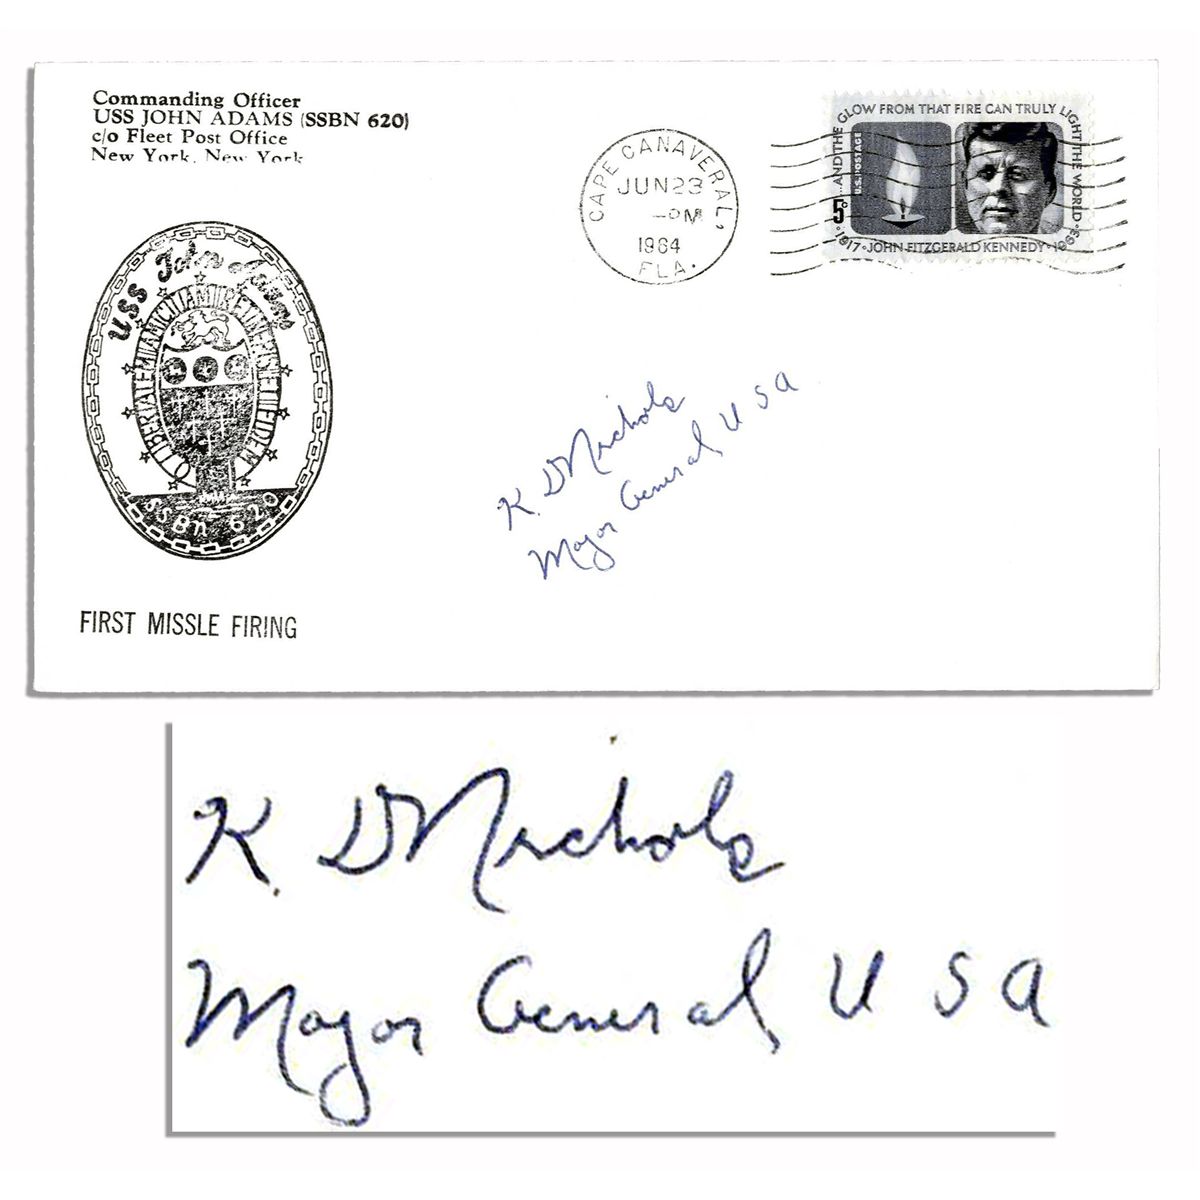 Commanding Officer
USS JOHN ADAMS (SSBN 620)
c/o Fleet Post Office
New York, New York
CAPE CANAVERAL,
JUN 23
PM
1964
FLA.
...AND THE GLOW FROM THAT FIRE CAN TRULY LIGHT THE WORLD
U.S. POSTAGE
5c
1917·JOHN FITZGERALD KENNEDY·1963
USS John Adams
SSBN 620
FIRST MISSLE FIRING
K. D Nichols
Major General U S A
K. D Nichols
Major General U S A